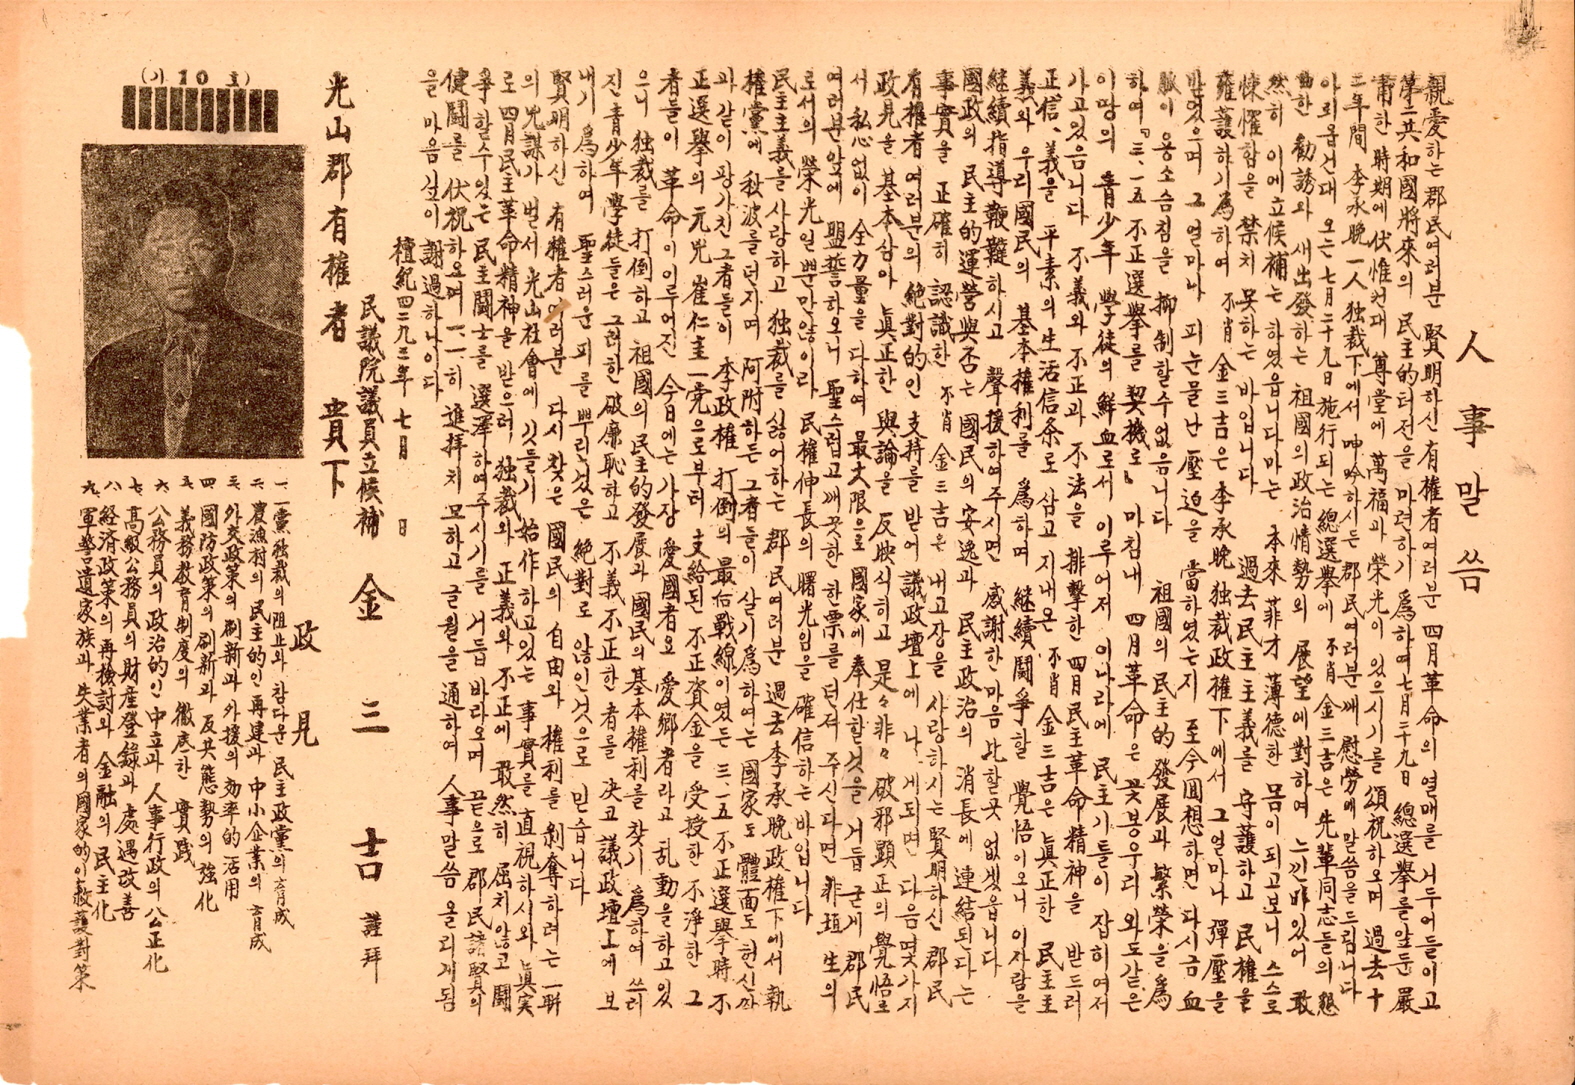 人事말씀
親愛하는 郡民여러분 賢明하신 有權者여러분 四月革命의 열매를 거두어들이고
第二共和國將來의 民主的터전을 마련하기 爲하여 七月二十九日 總選擧를앞둔 嚴
肅한 時期에 伏惟컨대 尊堂에 萬福과 榮光이 있으시기를 頌祝하오며 過去十
二年間 李承晩一人 独裁下에서 呻吟하시든 郡民여러분께 慰勞에말씀을드립니다
아뢰옵건대 오는七月二十九日 施行되는 總選擧에 不肖 金三吉은 先輩同志들의 懇
曲한 勸誘와 새出發하는 祖國의政治情勢와 展望에對하여 느낀바있어 敢
然히 이에立候補는 하였읍니다마는 本來 菲才 薄德한 몸이 되고보니 스스로
悚懼함을 禁치 못하는 바입니다 過去民主主義를 守護하고 民權을
雍護하기爲하여 不肖 金三吉은 李承晩 独裁政權下에서 그얼마나 彈壓을
받었으며 그얼마나 피눈물난 壓迫을 當하였는지 至今回想하면 다시금 血
脈이 용소슴침을 抑制할수없음니다 祖國의民主的發展과 繁榮을 爲
하여 『三、一五 不正選擧를 契機로』 마침내 四月革命은 꽃봉우리와도같은
이땅의 靑少年 學徒의 鮮血로서 이루어저 이나라에 民主기틀이 잡히여저
가고있음니다 不義와 不正과 不法을 排擊한 四月民主革命精神을 받드러
正信、義을 平素의生活信条로 삼고 지내온 不肖 金三吉은 眞正한 民主主
義와 우리國民의 基本權利를 爲하며 継續鬪爭할 覺悟이오니 이사람을
継續指導鞭韃하시고 聲援하여주시면 感謝한마음 比할곳 없겟읍니다
國政의 民主的運營與否는 國民의安逸과 民主政治의 消長에 連結된다는
事實을 正確히 認識한 不肖 金三吉은 내고장을 사랑하시는賢明하신 郡民
有權者여러분의 絶對的인 支持를받어 議政壇上에 나、게되면 다음몇가지
政見을 基本삼아 眞正한 與論을 反映시히고 是々非々 破邪顯正의 覺悟로
서 私心없이 全力量을 다하여 最大限으로國家에奉仕할것을 거듭 굳게 郡民
여러분앞에 盟誓하오니 聖스럽고깨끗한 한票를 던져 주신다면 非班 生의
로서의 榮光일뿐만않이라 民權伸長의 曙光임을 確信하는바입니다
民主主義를사랑하고 独裁를 싫어하는 郡民여러분 過去李承晩政權下에서 執
權黨에 秋波를던지며 阿附하든 그者들이 살기爲하여는 國家도 體面도 헌신짝
과 같이 팡가친그者들이 李政權 打倒의 最后戰線이였든 三、一五不正選擧時 不
正選擧의 元兇 崔仁圭一党으로부터 支給된 不正資金을 受授한 不淨한 그
者들이 革命이이루어진 今日에는 가장 愛國者요 愛鄕者라고 乱動을하고있
으니 独裁를 打倒하고 祖國의民主的發展과 國民의基本權利를 찾기 爲하여 쓰러
진 靑少年學徒들은 그러한破廉恥하고 不義不正한者를 决고 議政壇上에 보
내기 爲하여 聖스러운피를뿌린것은 絶對로 않인것으로 믿습니다
賢明하신 有權者여러분 다시 찾은 國民의自由와 權利를 剝奪하려는 一聯
의兇謀가 벌서 光山社會에 깃들기 始作하고있는 事實을直視하시와 眞実
로 四月民主革命精神을받으러、独裁와 正義와 不正에 敢然히 屈치않고 鬪
爭할수있는 民主鬪士를 選澤하여주시기를 거듭 바라오며 끝으로 郡民 諸賢의
健鬪를 伏祝하오며 一一히 進拜치 모하고 글월을通하여 人事말씀 올리게됨
을 마음깊이 謝過하나이다
檀紀四二九三年 七月 日
民議院議員立候補 金三吉 謹拜
光山郡有權者 貴下
(기 10 호)
政見
一、一黨独裁의 阻止와 참다운 民主政黨의育成
二、農漁村의 民主的인再建과 中小企業의 育成
三、外交政策의刷新과 外援의効率的 活用
四、國防政策의刷新과 反共態勢의强化
五、義務敎育制度의 徹底한 實踐
六、公務員의政治的인中立과 人事行政의公正化
七、高級公務員의財産登錄과 處遇改善
八、経済政策의再檢討와 金融의民主化
九、軍警遺家族과 失業者의國家的인救護對策